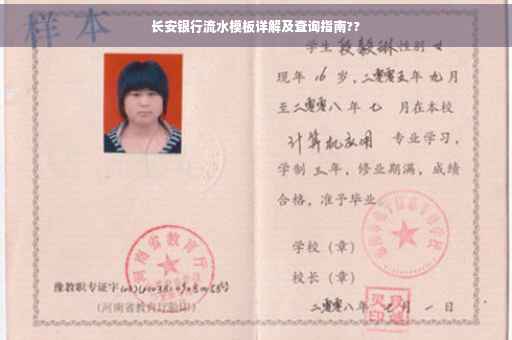 长安银行流水模板详解及查询指南??
样本
学生段毅琳性别女
现年16岁，二零零五年九月
至二零零八年七月在本校
计算机应用专业学习，
学制三年，修业期满，成绩
合格，准予毕业
学校（章）
校长（章）
二零零八年七月一日
河南省教育厅
豫教职专证字
(河南省教育厅验印)